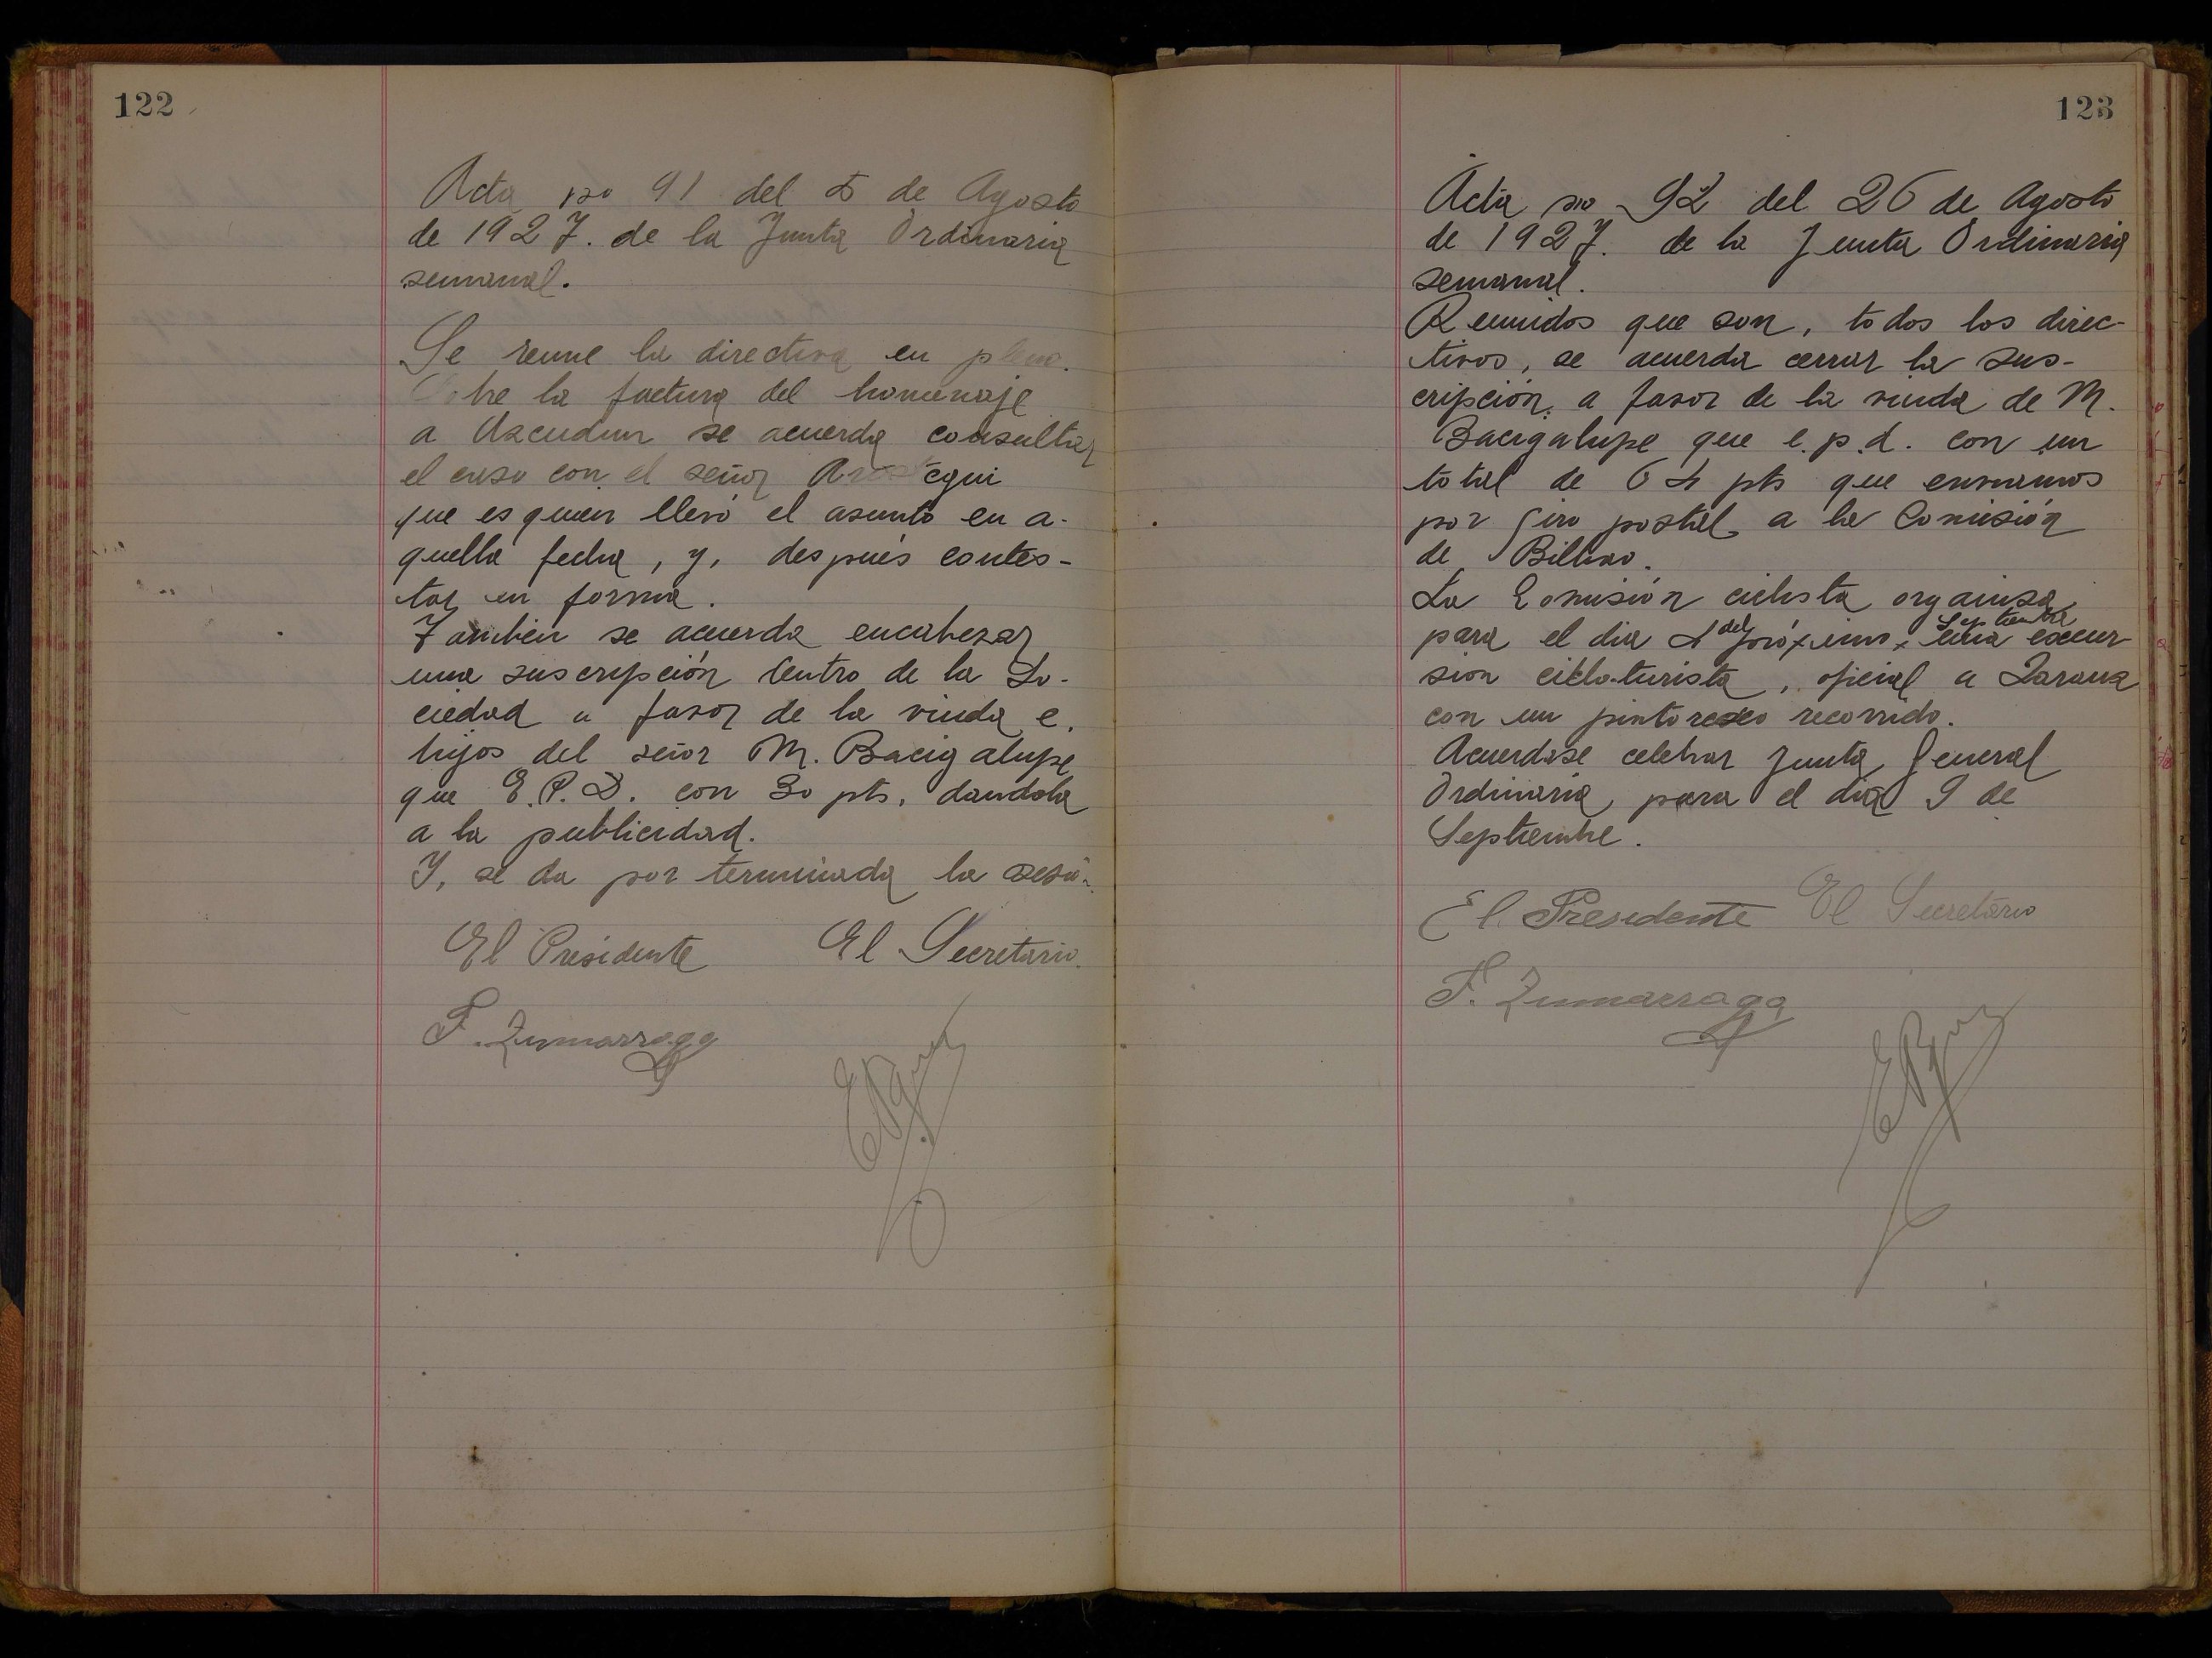 122
Acta no 91 del 5 de Agosto
de 1927. de la Junta Ordinaria
semanal.
Se reune la directiva en pleno.
la factura del homenaje
a Uzcudun se acuerda consultar
el caso con el señor
que es quien llevó el asunto en a-
quella fecha, y, después contes-
tar en forma.
Tambien se acuerda encabezar
una suscripción dentro de la So-
ciedad a favor de la viuda e
hijos del señor M. Bacigalupe
que E.P.D. con 30 pts, dandola
a la publicidad.
Y, se da por terminada la
El Presidente El Secretario.
F. Zumarraga
123
Acta no 92 del 26 de Agosto
de 1927. de la Junta Ordinaria
semanal.
Reunidos que son, todos los direc-
tivos, se acuerda cerrar la sus-
cripción a favor de la viuda de M.
Bacigalupe que e.p.d. con un
total de 64 pts que enviamos
por Giro postal a la Comisión
de Bilbao.
La Comisión ciclista organisa
para el dia 4 del próximo Septiembre una excur-
sion ciclo-turista, oficial a Zarauz
con un pintoresco recorrido.
Acuerdase celebrar Junta General
Ordinaria, para el día 9 de
Septiembre.
El Presidente El Secretario
F. Zumarraga